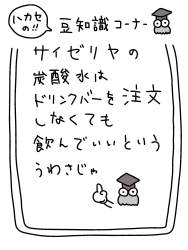 ハカセの!!
豆知識コーナー
サイゼリヤの
炭酸水は
ドリンクバーを注文
しなくても
飲んでいいという
うわさじゃ